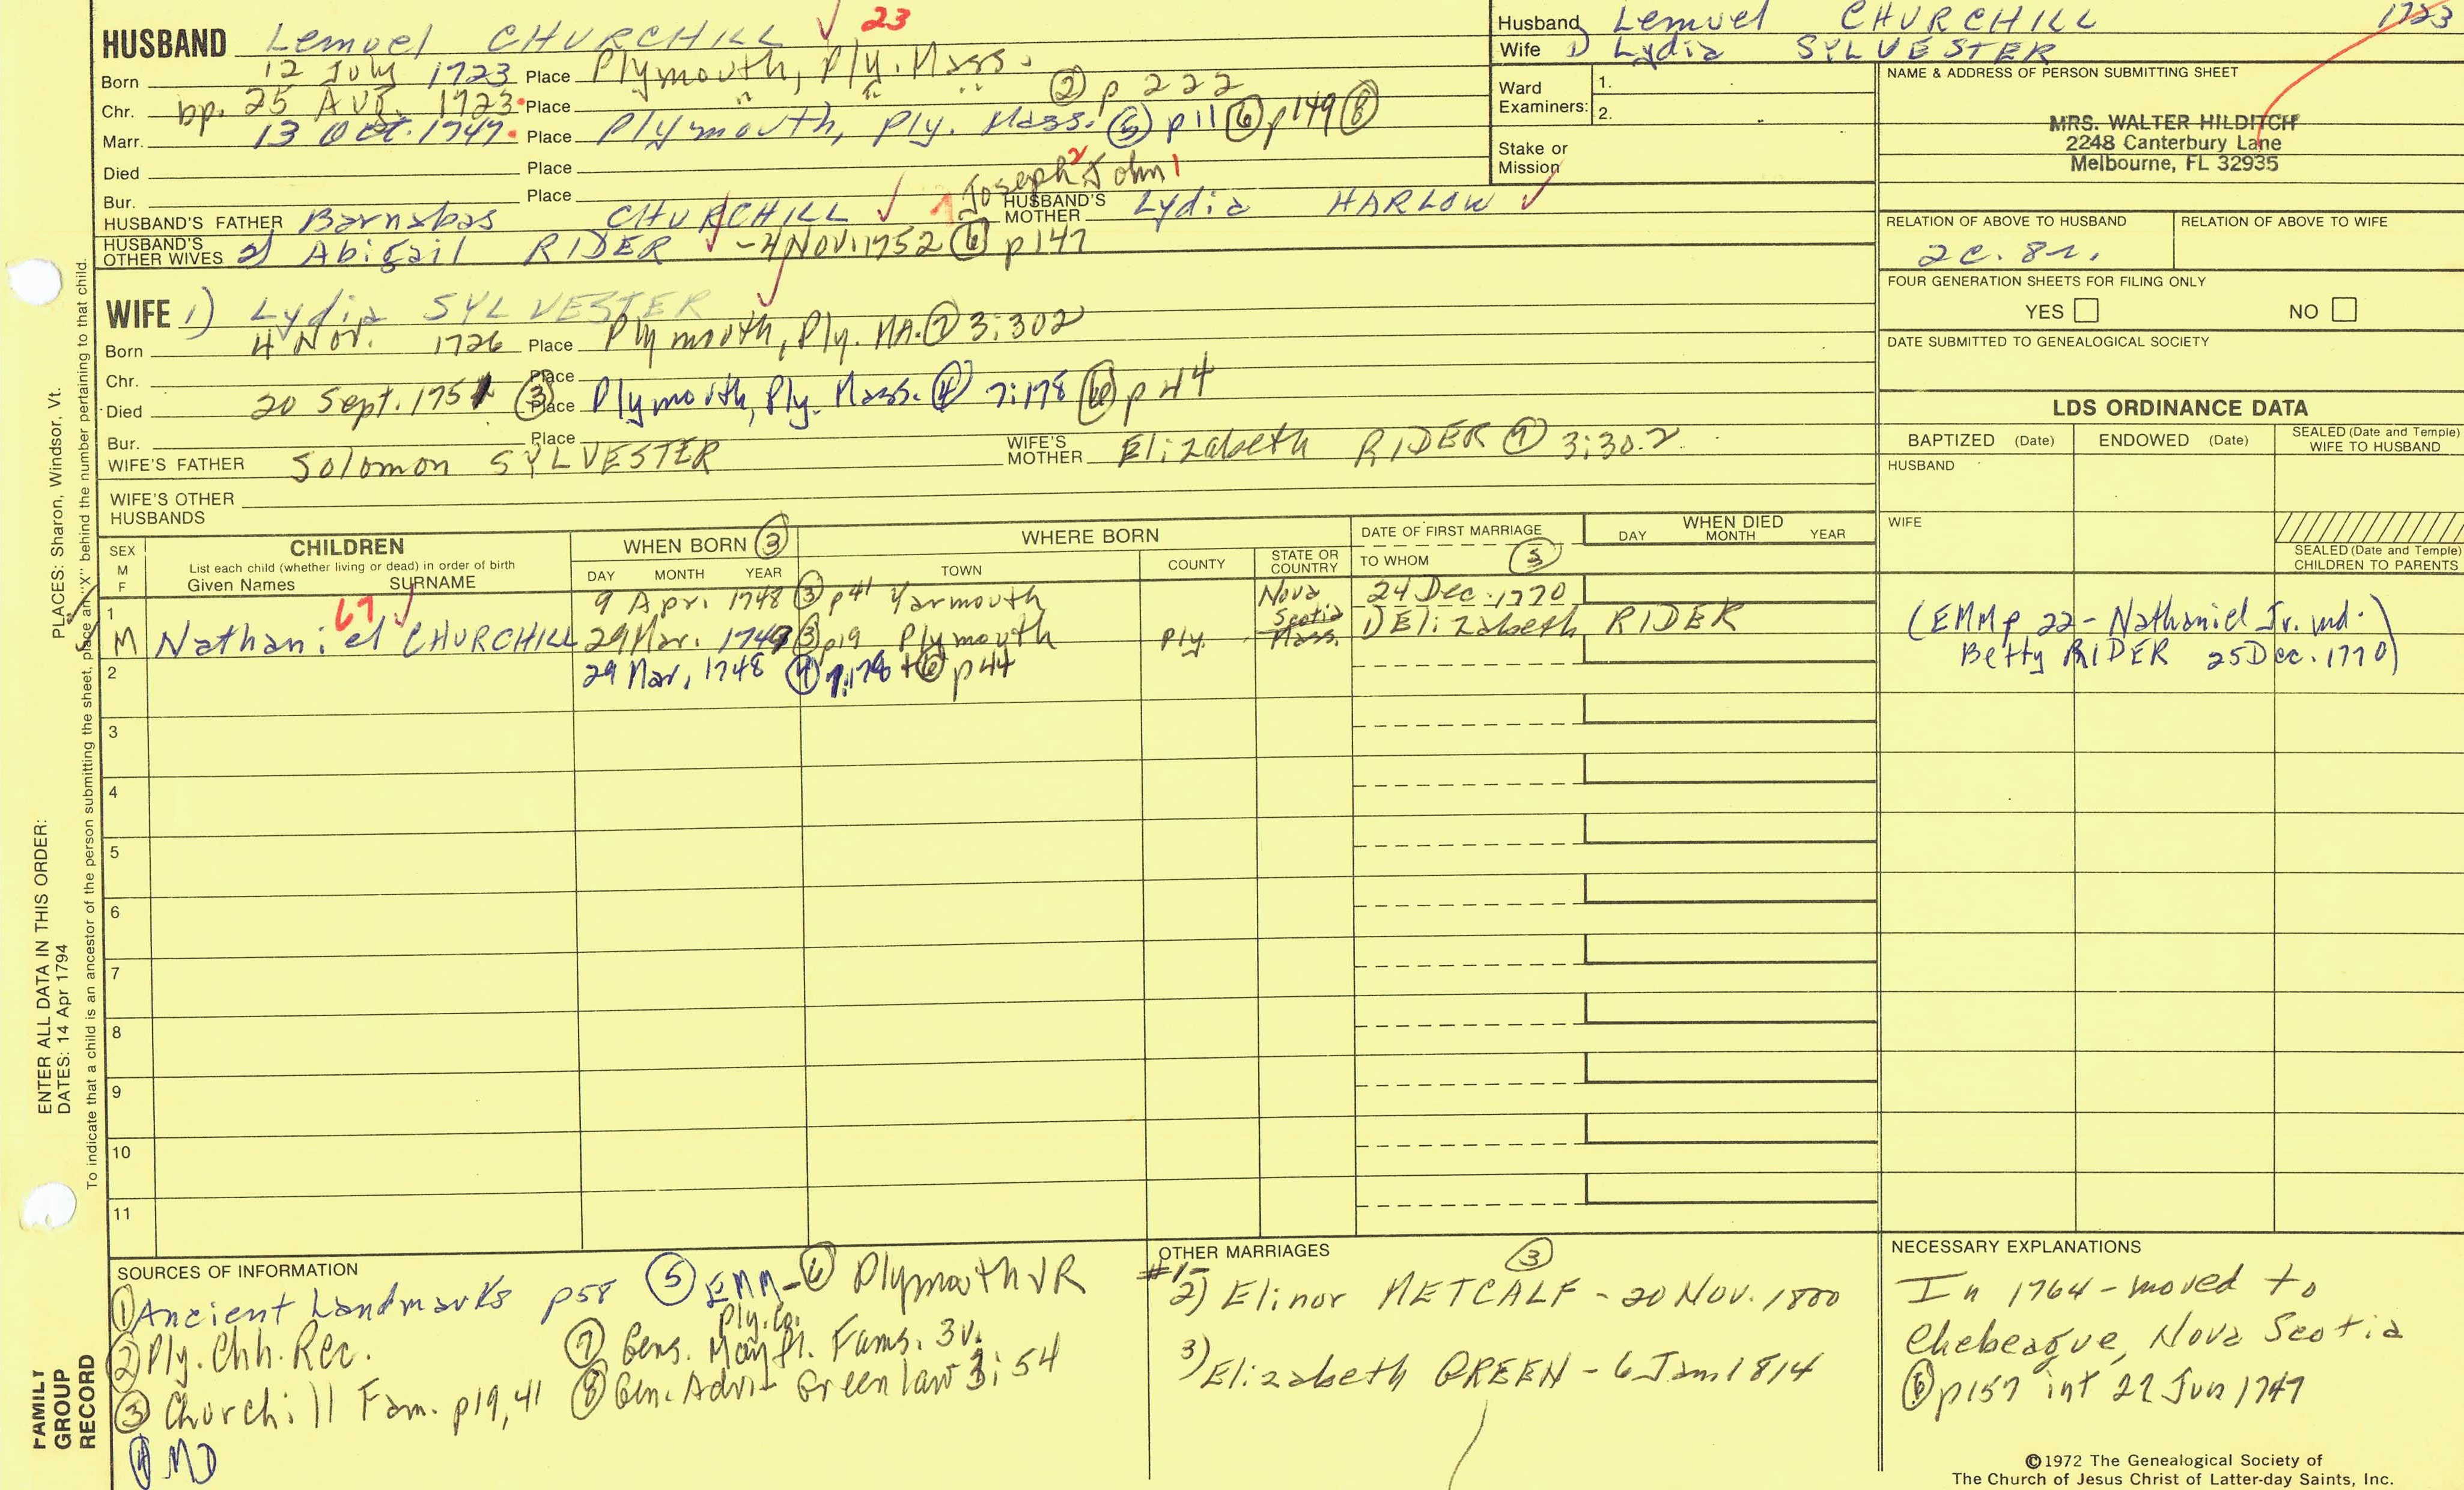 HUSBAND Lemuel CHURCHILL ✓ 23
Born 12 July 1723 Place Plymouth, Ply. Mass.
Chr. bp. 25 Aug. 1723 Place " " " ② p 222
Marr. 13 Oct. 1747 Place Plymouth, Ply. Mass. ⑤ p11 ⑥ p149 ⑧
Died Place
Bur. Place
Joseph 2 John 1
HUSBAND'S FATHER Barnabas CHURCHILL ✓ HUSBAND'S MOTHER Lydia HARLOW ✓
HUSBAND'S OTHER WIVES 2) Abigail RIDER ✓ - 4 Nov. 1752 ⑥ p147
WIFE 1) Lydia SYLVESTER ✓
Born 4 Nov. 1726 Place Plymouth, Ply. MA. ⑦ 3:302
Chr. Place
Died 20 Sept. 1751 ③ Place Plymouth, Ply. Mass. ④ 7:178 ⑥ p44
Bur. Place
WIFE'S FATHER Solomon SYLVESTER WIFE'S MOTHER Elizabeth RIDER ⑦ 3:302
WIFE'S OTHER HUSBANDS
Husband Lemuel CHURCHILL 1723
Wife 1) Lydia SYLVESTER
Ward Examiners: 1.
2.
Stake or Mission
NAME & ADDRESS OF PERSON SUBMITTING SHEET
MRS. WALTER HILDITCH
2248 Canterbury Lane
Melbourne, FL 32935
RELATION OF ABOVE TO HUSBAND RELATION OF ABOVE TO WIFE
2c. 8r.
FOUR GENERATION SHEETS FOR FILING ONLY
YES NO
DATE SUBMITTED TO GENEALOGICAL SOCIETY
LDS ORDINANCE DATA
BAPTIZED (Date) ENDOWED (Date) SEALED (Date and Temple) WIFE TO HUSBAND
HUSBAND
WIFE
SEALED (Date and Temple) CHILDREN TO PARENTS
SEX M F
CHILDREN
List each child (whether living or dead) in order of birth
Given Names SURNAME
WHEN BORN ③
DAY MONTH YEAR
WHERE BORN
TOWN COUNTY STATE OR COUNTRY
DATE OF FIRST MARRIAGE
TO WHOM ⑤
WHEN DIED
DAY MONTH YEAR
1 67 ✓ 9 Apr. 1748 ③ p41 Yarmouth Nova Scotia 24 Dec. 1770
M Nathaniel CHURCHILL 29 Mar. 1747 ③ p19 Plymouth Ply. Mass. 1) Elizabeth RIDER
(EMM p 22 - Nathaniel Jr. md.
Betty RIDER 25 Dec. 1770)
2 29 Mar. 1748 ④ 7:178 + ⑥ p44
3
4
5
6
7
8
9
10
11
SOURCES OF INFORMATION
① Ancient Landmarks p58
② Ply. Chh. Rec.
③ Churchill Fam. p19, 41
④ MD
⑤ EMM - Ply. Co.
⑥ Plymouth VR
⑦ Gens. Mayfl. Fams. 3v.
⑧ Gen. Advr- Greenlaw 3:54
OTHER MARRIAGES ③
#1-
2) Elinor METCALF - 20 Nov. 1800
3) Elizabeth GREEN - 6 Jan 1814
NECESSARY EXPLANATIONS
In 1764 - moved to
Chebeague, Nova Scotia
⑥ p157 int 27 Jun 1747
©1972 The Genealogical Society of
The Church of Jesus Christ of Latter-day Saints, Inc.
FAMILY
GROUP
RECORD
ENTER ALL DATA IN THIS ORDER:
DATES: 14 Apr 1794
PLACES: Sharon, Windsor, Vt.
To indicate that a child is an ancestor of the person submitting the sheet, place an "X" behind the number pertaining to that child.